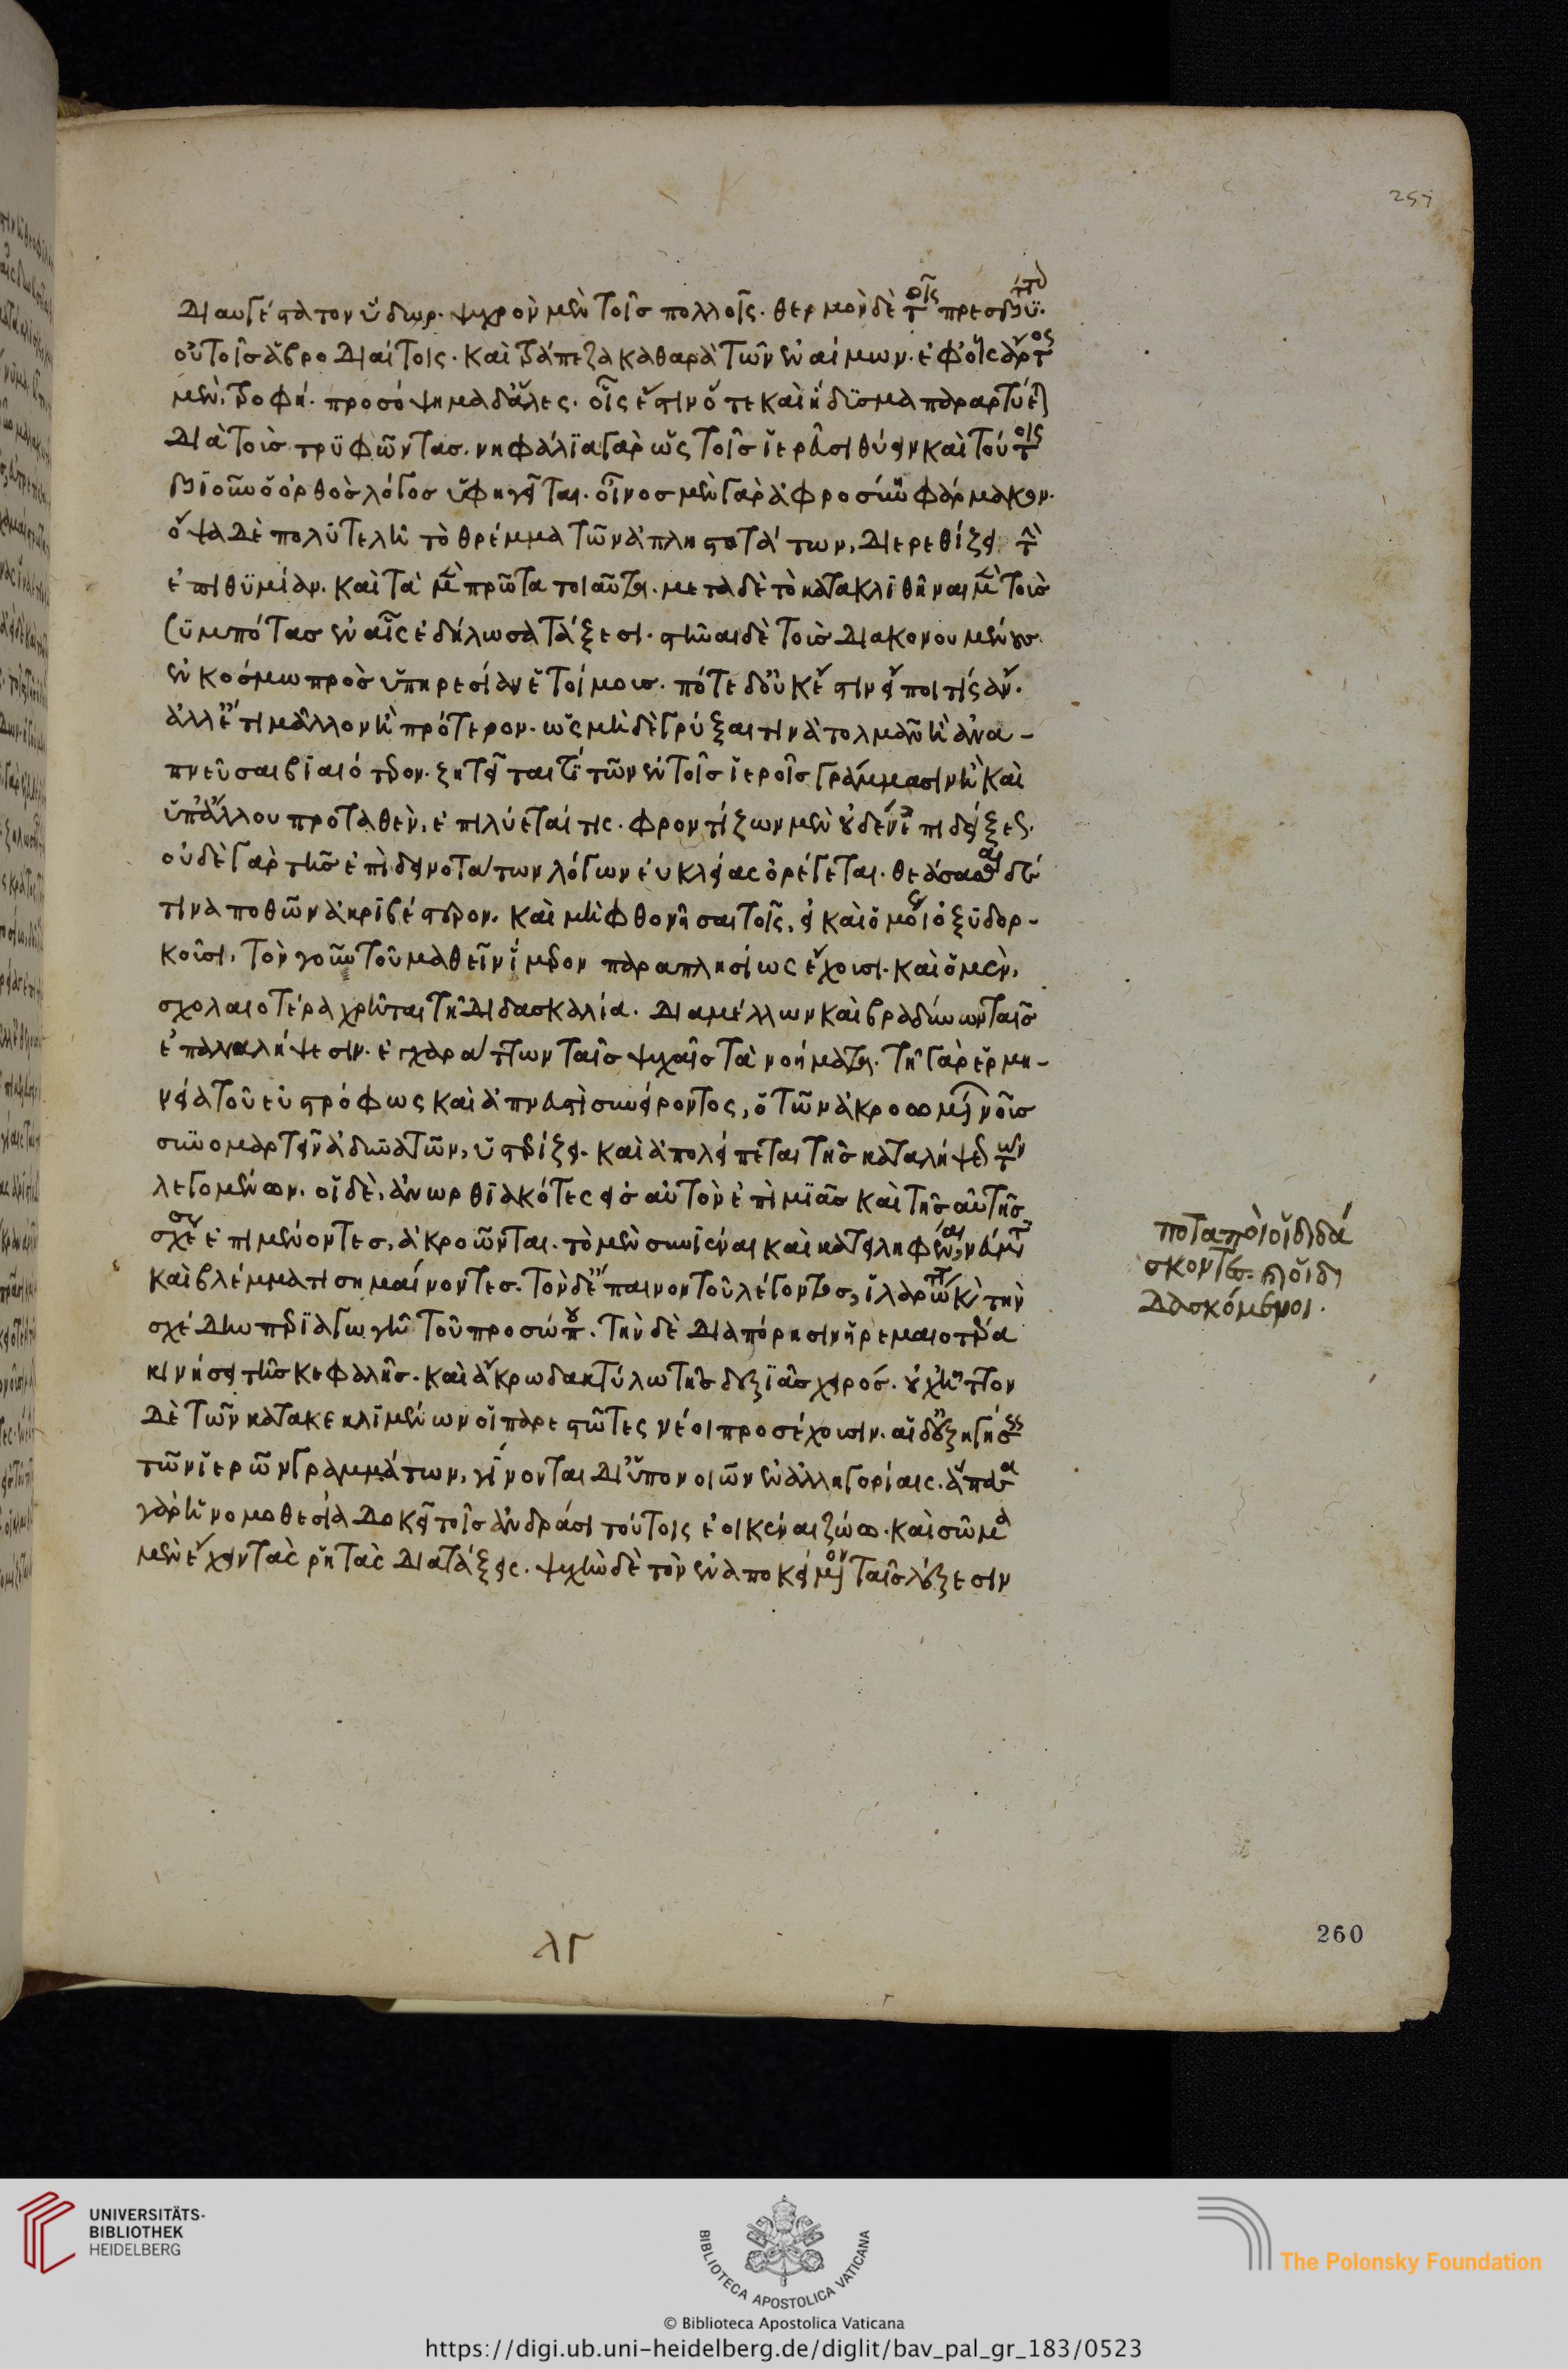 257
διαυγέστατον ὕδωρ· ψυχρὸν μὲν τοῖς πολλοῖς· θερμὸν δὲ τοῖς πρεσβυτ
οὐ τοῖς ἁβροδιαίτοις· καὶ τράπεζα καθαρὰ τῶν ἐναίμων· ἐφ' οἷς ἄρτος
μὲν, τροφή· προσόψημα δ' ἅλες· οἷς ἔστιν ὅτε καὶ ἥδϋσμα παραρτύεται
διὰ τοὺς τρϋφῶντας· νηφάλϊα γὰρ ὡς τοῖς ἱερεῦσι θύειν καὶ τούτοις
βϊοῦν ὁ ὀρθὸς λόγος ὑφηγεῖται· οἶνος μὲν γὰρ ἀφροσύνη φάρμακον·
ὄψα δὲ πολϋτελῆ τὸ θρέμμα τῶν ἀπληστοτάτων, διερεθίζει τὴν
ἐπιθϋμίαν· καὶ τὰ μὲν πρῶτα τοιαῦτα· μετὰ δὲ τὸ κατακλϊθῆναι μὲν τοὺς
συμπότας ἐν αἷς ἐδήλωσα τάξεσι· στῆναι δὲ τοὺς διακονουμένους
ἐν κόσμω πρὸς ὑπηρεσίαν ἑτοίμους· πότε δ' οὐκ ἔστιν εἴποι τίς ἄν·
ἀλλ' ἔτι μᾶλλον ἢ πρότερον· ὡς μὴ δὲ γρύξαι τινὰ τολμᾶν ἢ ἀνα-
πνεῦσαι βϊαιότερον· ζητεῖταί τϊ τῶν ἐν τοῖς ἱεροῖς γράμμασιν ἢ καὶ
ὑπ' ἄλλου προταθὲν, ἐπιλύεταί τις· φροντίζων μὲν οὐδὲν ἐπιδείξεως·
οὐδὲ γὰρ τῆς ἐπὶ δεινότατων λόγων εὐκλείας ὀρέγεται· θεάσασθαι δέ
τινα ποθῶν ἀκρϊβέστερον· καὶ μὴ φθονῆσαι τοῖς, εἰ καὶ ὁμοίως ὀξϋδορ-
κοῦσι, τὸν γοῦν τοῦ μαθεῖν ἵμερον παραπλησίως ἔχουσι· καὶ ὁ μὲν,
σχολαιοτέρα χρῆται τῆ διδασκαλία· διαμέλλων καὶ βραδύνων ταῖς
ἐπαναλήψεσιν· ἐγχαράττων ταῖς ψυχαῖς τὰ νοήματα· τῆ γὰρ ἑρμη-
νεία τοῦ εὐτρόφως καὶ ἀπνευστὶ συνείροντος, ὁ τῶν ἀκροωμένων νοῦς
συνομαρτεῖν ἀδυνατῶν, ὑστερίζει· καὶ ἀπολείπεται τῆς καταλήψεως τῶν
λεγομένων· οἱ δὲ, ἀνωρθϊακότες εἰς αὐτὸν ἐπὶ μϊᾶς καὶ τῆς αὐτῆς
σχέσεως ἐπιμένοντες, ἀκροῶνται· τὸ μὲν συνϊέναι καὶ κατειληφέναι, νεύματι
καὶ βλέμματι σημαίνοντες· τὸν δ' ἔπαινον τοῦ λέγοντος, ἱλαρότητι καὶ τὴν
σχέδην περϊαγωγῆ τοῦ προσώπου· τὴν δὲ διαπόρησιν ἠρεμαιοτέρα
κινήσει τῆς κεφαλῆς· καὶ ἄκρω δακτύλω τῆς δεξϊᾶς χειρός· οὐχ ἧττον
δὲ τῶν κατακεκλϊμένων οἱ παρεστῶτες νέοι προσέχουσιν· αἱ δ' ἐξηγήσεις
τῶν ἱερῶν γραμμάτων, γίνονται δι' ὑπονοιῶν ἐν ἀλληγορίαις· ἅπασα
γὰρ ἡ νομοθεσία δοκεῖ τοῖς ἀνδράσι τούτοις ἐοικέναι ζώω· καὶ σῶμα
μὲν ἔχειν τὰς ῥητὰς διατάξεις· ψυχὴν δὲ τὸν ἐναποκείμενον ταῖς λέξεσιν
ποταποὶ οἱ διδά
σκοντες· οἱ διδα
δασκόμενοι·
λγ
260
UNIVERSITÄTS-
BIBLIOTHEK
HEIDELBERG
BIBLIOTECA APOSTOLICA VATICANA
The Polonsky Foundation
© Biblioteca Apostolica Vaticana
https://digi.ub.uni-heidelberg.de/diglit/bav_pal_gr_183/0523